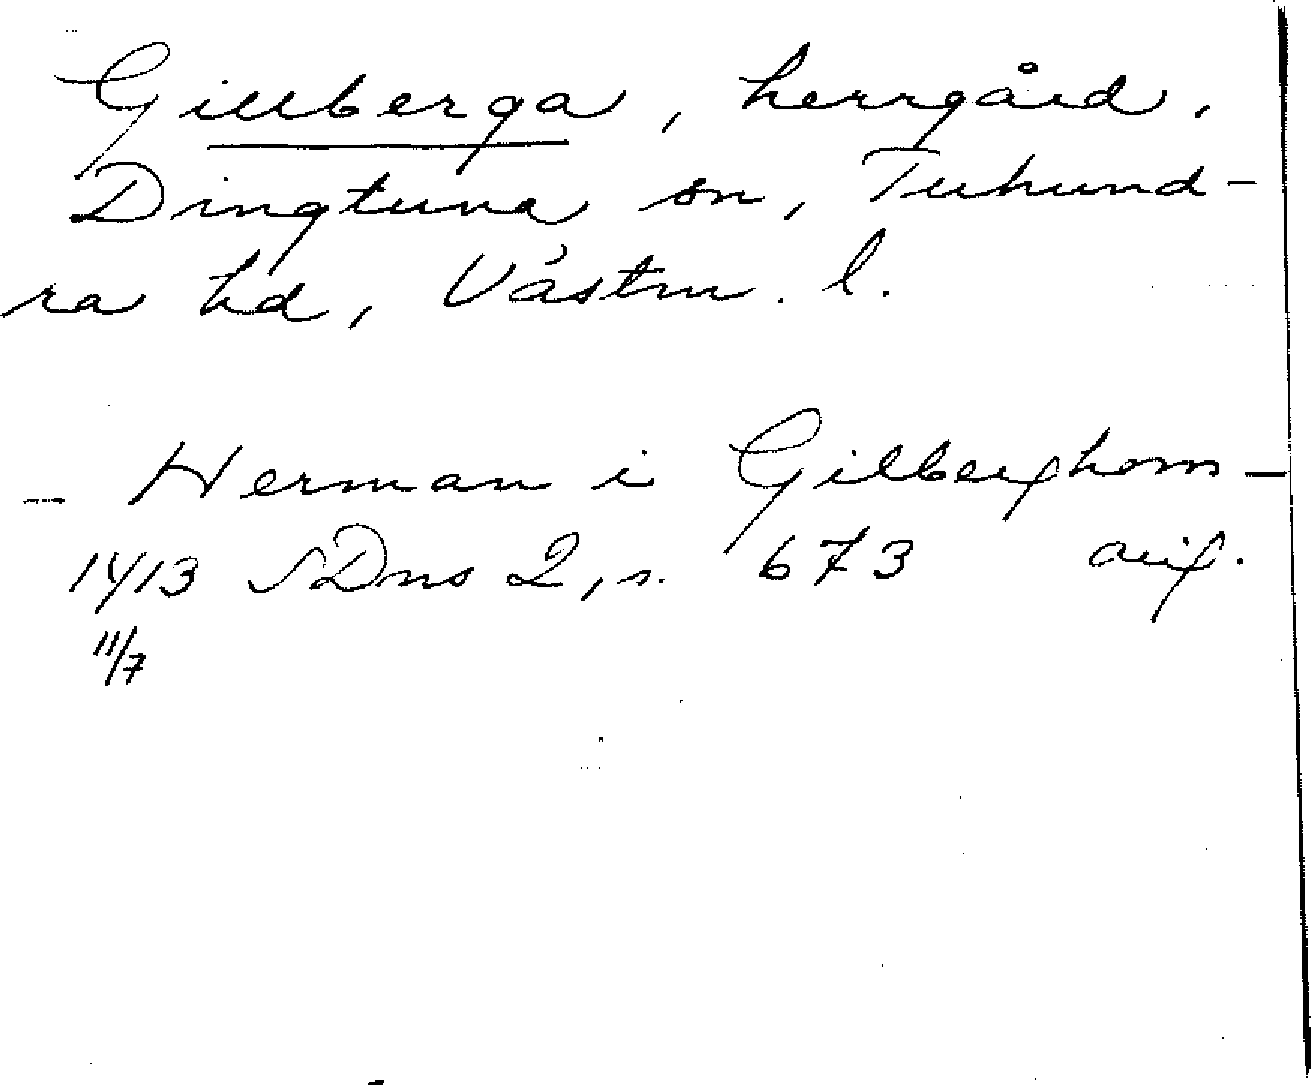 Gillberga, herrgård,
Dingtuna sn, Tuhund-
ra hd, Västm. l.
– Herman i Gilberghom –
1413 SDns 2, s. 673 avs.
11/7